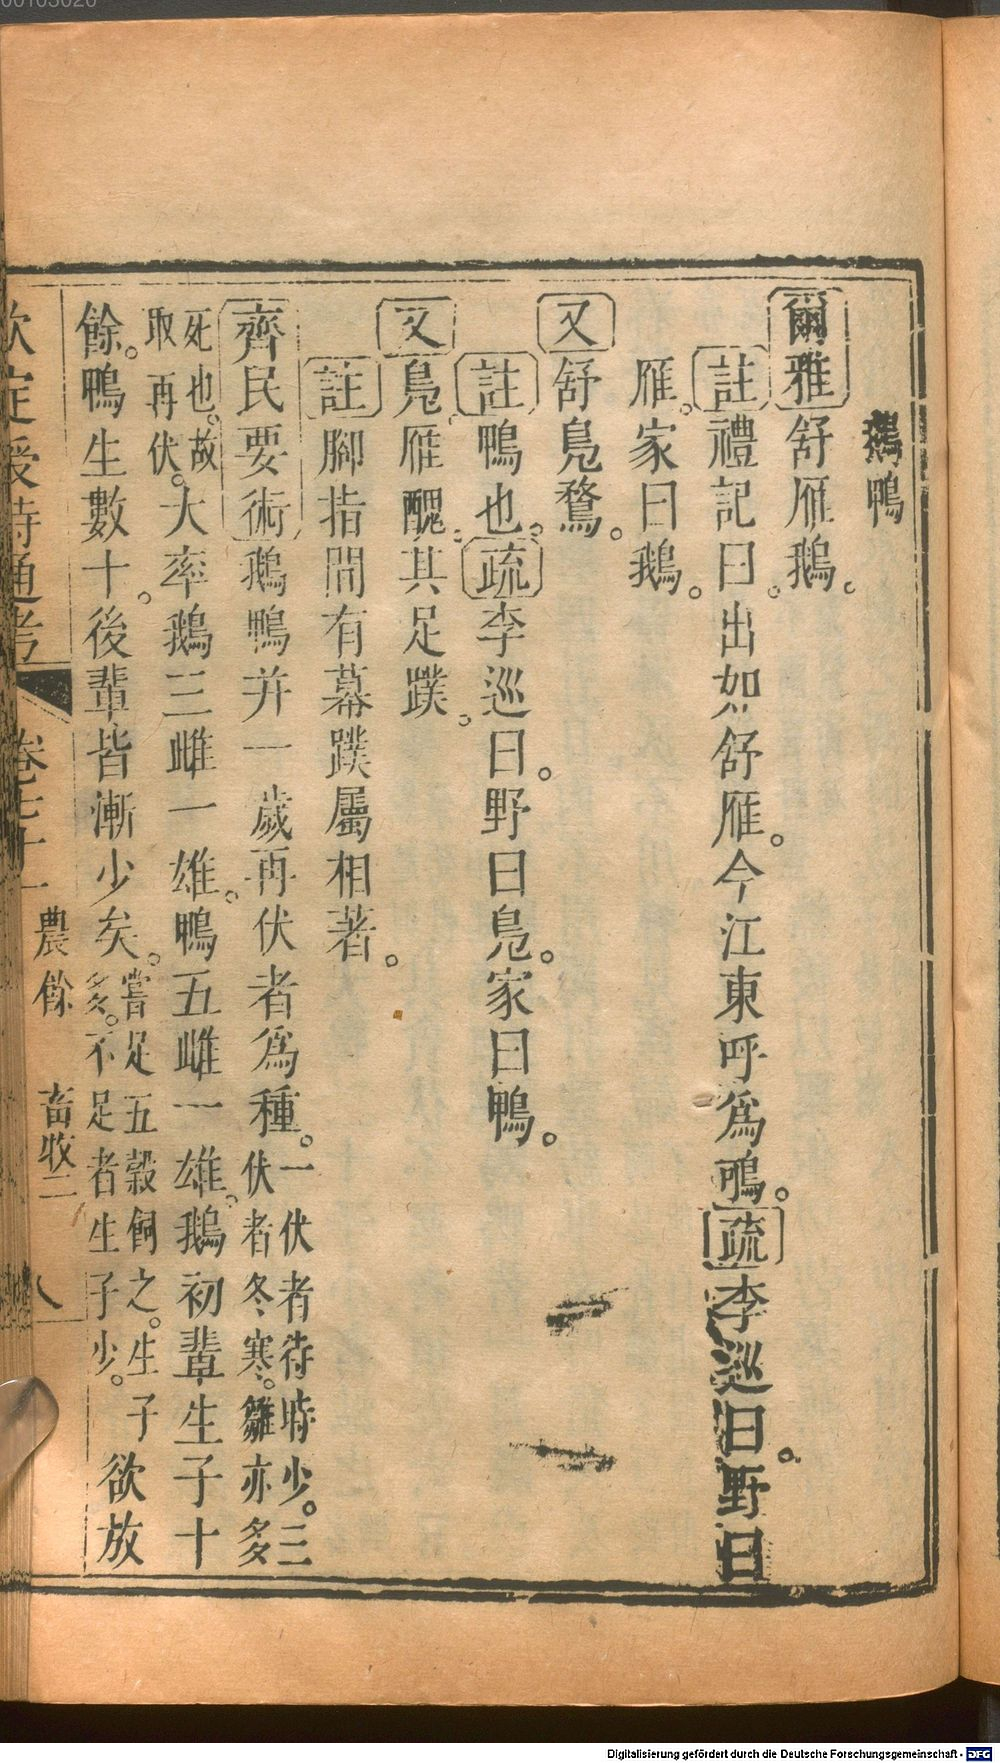 鵝鴨
爾雅舒雁鵝。
註禮記曰。出如舒雁。今江東呼爲鳴。疏李巡曰。野曰
雁。家曰鵝。
又舒鳧鶩。
註鴨也。疏李巡曰。野曰鳧。家曰鴨。
又鳧雁醜。其足蹼。
註腳指間有幕蹼屬相著。
齊民要術鵝鴨并一歲再伏者爲種。一伏者待時少。三
伏者冬寒。雛亦多
死也。故
取再伏。大率鵝三雌一雄。鴨五雌一雄。鵝初輩生子十
餘。鴨生數十。後輩皆漸少矣。嘗足五穀飼之。生子
多。不足者生子少。欲放
欽定授時通考 卷七十一 農餘 畜牧二 八
00103020
Digitalisierung gefördert durch die Deutsche Forschungsgemeinschaft - DFG